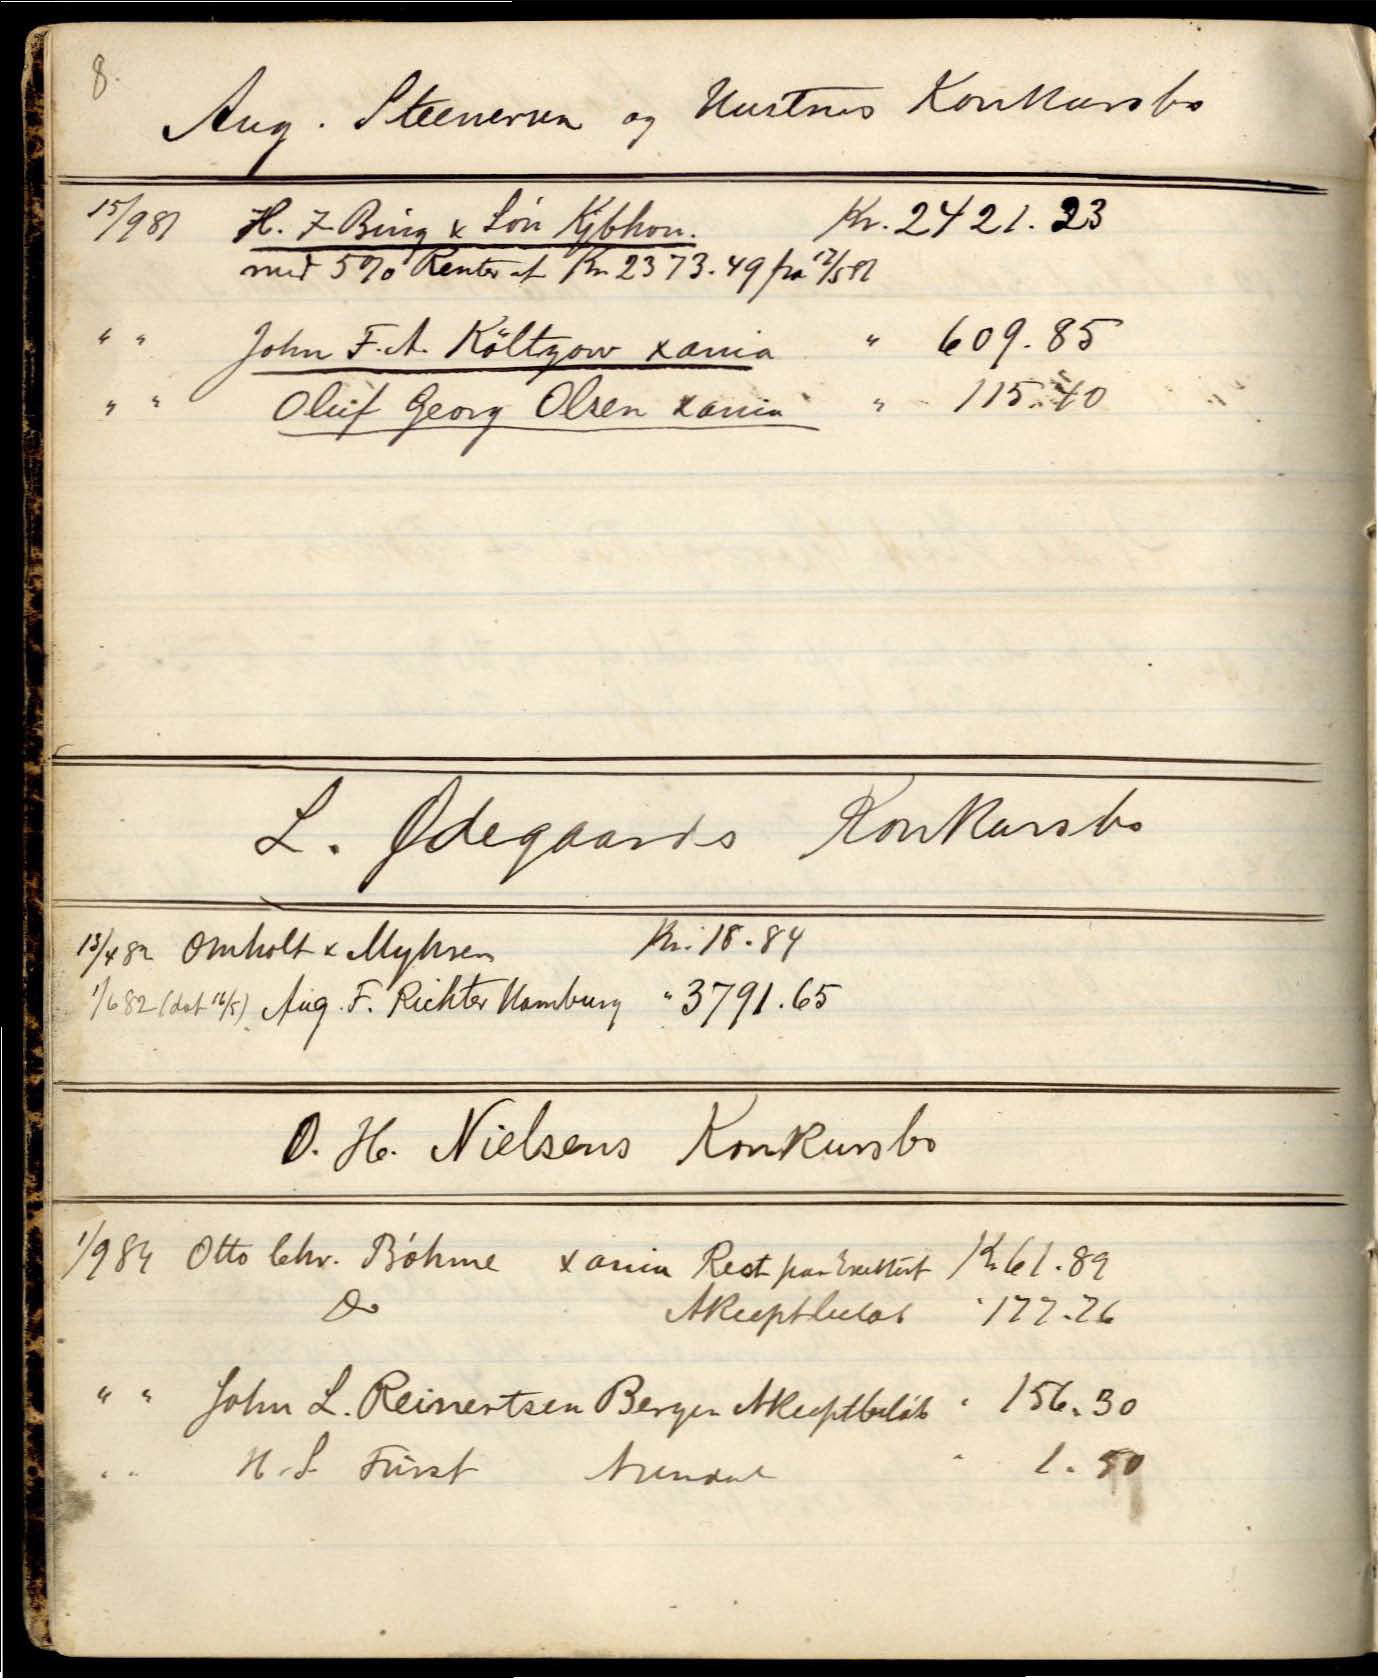 8.
Aug. Steenersen og Hustrus Konkursbo
15/9 81 H. F. Bing x Sön Kjbhvn. Kr. 2421.23
med 5% Renter af Kr 2373.49 fra 12/5 81
" " John F. A. Költzow xania " 609.85
" " Oluf Georg Olsen xania " 115.40
L. Ødegaards Konkursbo
13/4 82 Omholt x Myhren Kr. 18.84
1/6 82 (dat 16/5) Aug. F. Richter Hamburg " 3791.65
O. H. Nielsens Konkursbo
1/9 84 Otto Chr. Böhme xania Rest paa Kr 61.89
Do Akceptbelöb " 177.76
" " John L. Reinertsen Bergen Akceptbelöb " 156.30
" " H. S. Fürst Arendal " 1.50